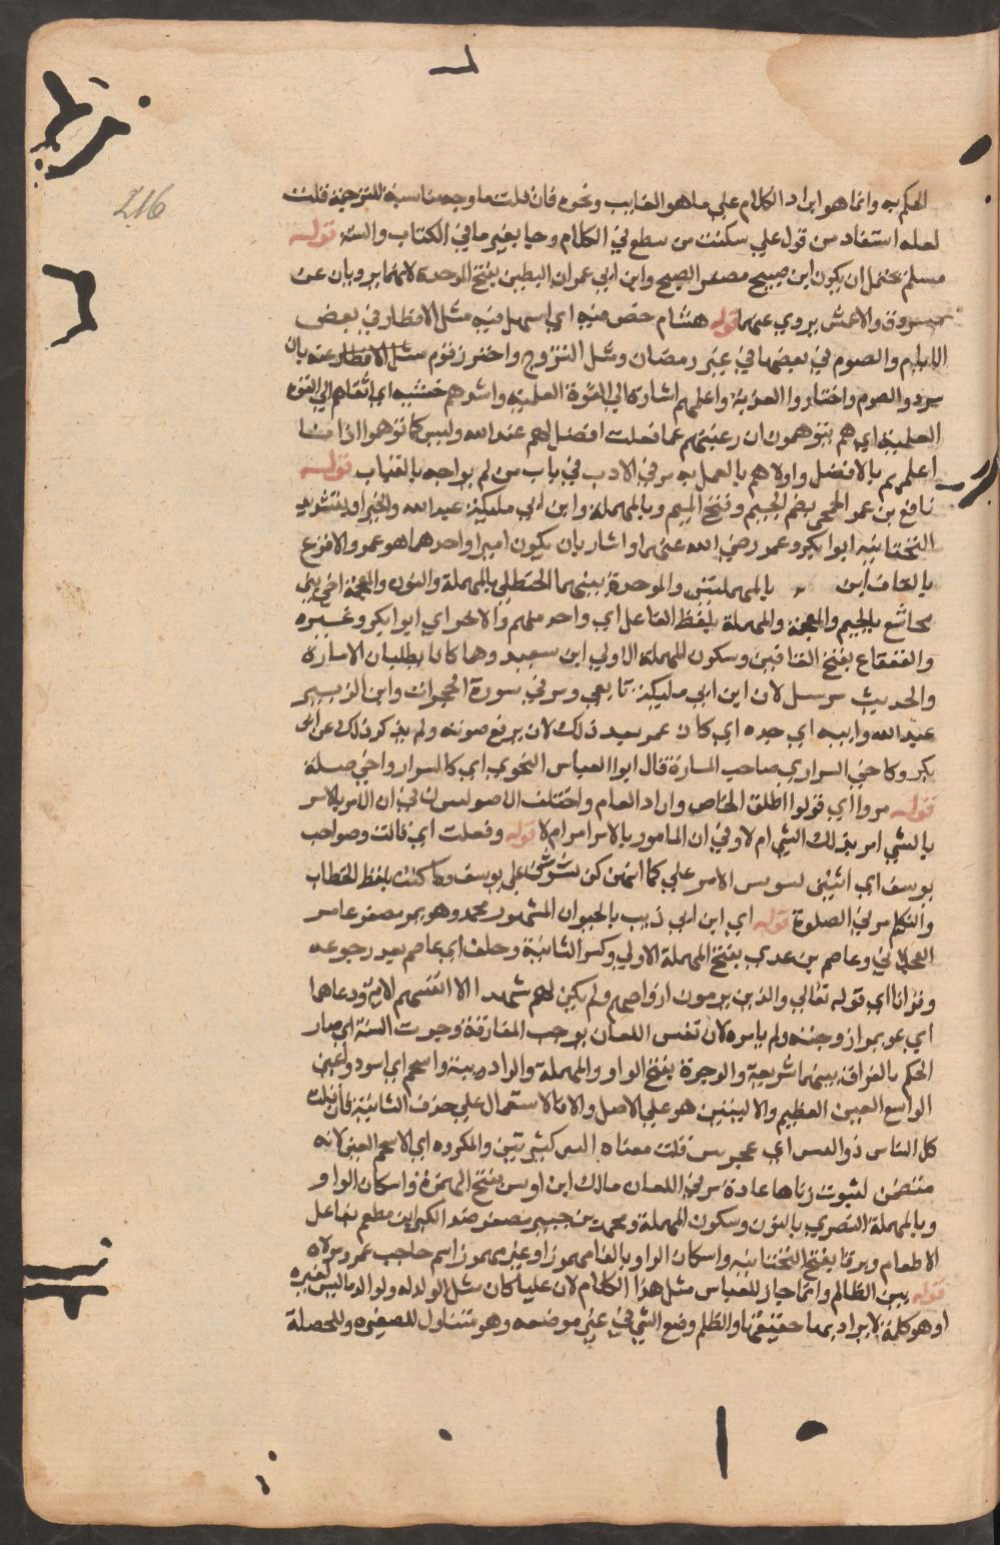 216
الحكم به وانما هو ايراد الكلام علي ما هو الغايب ونحوه فان قلت ما وجه مناسبة للترجمة قلت
لعله استفاد من قول علي سكنت من سطع لي الكلام وجا بغير ما في الكتاب والسنة قوله
مسلم يحتمل ان يكون ابن صبيح مصغر الصبح وابن ابي عمران البطين بفتح الموحدة لانهما يرويان عن
مسروق والاعمش يروي عنهما قوله هشام خص فيه اي اسهل فيه مثل الافطار في بعض
الايام والصوم في بعضها في غير رمضان ومثل التزوج واحترز قوم مثل الافطار عنه بان
سردوا الصوم واختاروا العزبة واعلمهم اشارة الي القوة العلمية واشدهم خشية اي اتقاهم الي القوة
العلمية اي هم يتوهمون ان رغبتهم عما فعلت افضل لهم عند الله وليس كما توهموا اذا منا
اعلمهم بالافضل واولاهم بالعمل به مر في الادب في باب من لم يواجه بالعتاب قوله
نافع بن عمر الجمحي بضم الجيم وفتح الميم وبالمهملة وابن ابي مليكة عبد الله والخيران بتشديد
التحتانية ابوا بكر وعمر رضي الله عنهما واشار بان يكون اميرا واحدهما هو عمر والاقرع
بالقاف ابن بالمهملتين والموحدة بينهما الحنظلي بالمهملة والنون والمعجمة اخي بني
مجاشع بالجيم والمعجمة والمهملة بلفظ الفاعل اي واحد منهم والاخر اي ابوا بكر وغيره
والقعقاع بفتح القافين وسكون المهملة الاولي ابن سعيد وهما كانا يطلبان الامارة
والحديث مرسل لان ابن ابي مليكة تابعي ومر في سورة الحجرات وابن الزبير
عبد الله وابيه اي جده اي كان عمر بعد ذلك لان يرفع صوته ولم يذكر ذلك عن ابي
بكر وكاخي السرار اي صاحب المسارة قال ابوا العباس النحوي اي كالسرار واخي صلة
قوله مروا اي قولوا اطلق الخاص واراد العام واختلف الاصوليون في ان الامر بالامر
بالشي امر بذلك الشي ام لا وفي ان المامور بالامر امر ام لا قوله وفعلت اي قالت وصواحب
يوسف اي انتن تشوش الامر علي كما انهن كن تشوشن علي يوسف وما كنت بلفظ الخطاب
والتكلم مر في الصلوة قوله اي ابن ابي ذيب بالحيوان المشهور محمد وهو عويمر مصغر عامر
العجلاني وعاصم بن عدي بفتح المهملة الاولي وكسر الثانية وخلف اي عاصم بعد رجوعه
وقرانا اي قوله تعالي والذين يرمون ازواجهم ولم يكن لهم شهدا الا انفسهم الاية ودعاهما
اي عويمرا وزوجته ولم يامره لان نفس اللعان يوجب المفارقة وجرت السنة اي صار
الحكم بالفراق بينهما شريعة والوحرة بفتح الواو والمهملة والرا دويبة واسحم اي اسود واعين
الواسع العين العظيم والاليتين هو علي الاصل والا فالاستعمال علي حذف الثانية فان قلت
كل الناس ذوالعين اي عجز من قلت معناه اليتين كبيرتين والمكروه اي الاسحم العين لانه
متضمن لثبوت زناها عادة مر في اللعان مالك ابن اوس بفتح الهمزة واسكان الواو
وبالمهملة النصري بالنون وسكون المهملة ومحمد بن جبير مصغر ضد الكسر ابن مطعم بفاعل
الاطعام ويرفا بفتح التحتانية واسكان الراو وبالفا مهموزا وغير مهموز اسم حاجب عمر ومولاه
قوله بين الظالم وانما جاز للعباس مثل هذا الكلام لان عليا كان مثل الولد له ولوالد ما ليس لغيره
او هو كلمة لا يراد بها حقيقتها والظلم وضع الشي في غير موضعه وهو متناول للصغيرة وللخصلة